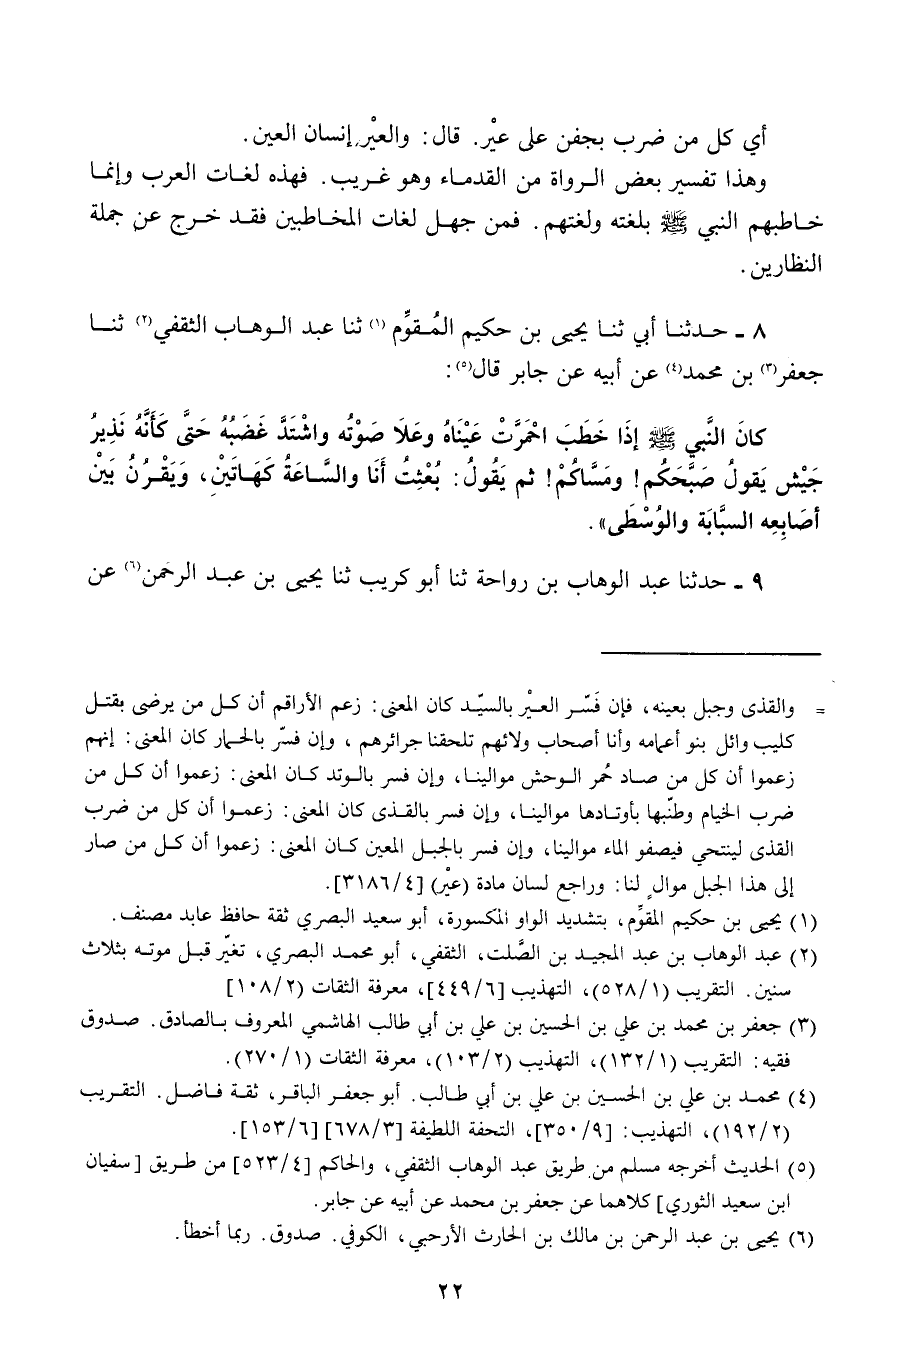 أي كل من ضرب بجفن على عيْر. قال: والعيْر إنسان العين.
وهذا تفسير بعض الرواة من القدماء وهو غريب. فهذه لغات العرب وإنما
خاطبهم النبي ﷺ بلغته ولغتهم. فمن جهل لغات المخاطبين فقد خرج عن جملة
النظارين.
٨ - حدثنا أبي ثنا يحيى بن حكيم المُقوِّم (١) ثنا عبد الوهاب الثقفي(٢) ثنا
جعفر(٣) بن محمد(٤) عن أبيه عن جابر قال(٥):
كانَ النَّبي ﷺ إذَا خَطَبَ احْمَرَّتْ عَيْنَاهُ وعَلَا صَوْتُه واشْتَدَّ غَضَبُهُ حَتَّى كَأَنَّهُ نَذِيرُ
جَيْش يَقولُ صَبَّحَكُم! ومَسَّاكُمْ! ثم يَقُولُ: بُعْثِتُ أَنَا والسَّاعَةُ كَهَاتَيْنِ، وَيَقْرُنُ بَيْنَ
أصَابِعِه السبَّابَة والوُسْطَى».
٩ - حدثنا عبد الوهاب بن رواحة ثنا أبو كريب ثنا يحيى بن عبد الرحمن(٦) عن
= والقذى وجبل بعينه، فإن فَسَّر العيْر بالسيّد كان المعنى: زعم الأراقم أن كل من يرضى بقتل
كليب وائل بنو أعمامه وأنا أصحاب ولائهم تلحقنا جرائرهم، وإن فسّر بالحمار كان المعنى: إنهم
زعموا أن كل من صاد حُمر الوحش موالينا، وإن فسر بالوتد كان المعنى: زعموا أن كل من
ضرب الخيام وطنّبها بأوتادها موالينا، وإن فسر بالقذى كان المعنى: زعموا أن كل من ضرب
القذى لينتحي فيصفو الماء موالينا، وإن فسر بالجبل المعين كان المعنى: زعموا أن كل من صار
إلى هذا الجبل موالٍ لنا: وراجع لسان مادة (عيْر) [٣١٨٦/٤].
(١) يحيى بن حكيم المقوِّم، بتشديد الواو المكسورة، أبو سعيد البصري ثقة حافظ عابد مصنف.
(٢) عبد الوهاب بن عبد المجيد بن الصَّلت، الثقفي، أبو محمد البصري، تغيّر قبل موته بثلاث
سنين. التقريب (٥٢٨/١)، التهذيب [٤٤٩/٦]، معرفة الثقات (١٠٨/٢]
(٣) جعفر بن محمد بن علي بن الحسين بن علي بن أبي طالب الهاشمي المعروف بالصادق. صدوق
فقيه: التقريب (١٣٢/١)، التهذيب (١٠٣/٢)، معرفة الثقات (٢٧٠/١).
(٤) محمد بن علي بن الحسين بن علي بن أبي طالب. أبو جعفر الباقر، ثقة فاضل. التقريب
(١٩٢/٢)، التهذيب: [٣٥٠/٩]، التحفة اللطيفة [٦٧٨/٣] [١٥٣/٦].
(٥) الحديث أخرجه مسلم من طريق عبد الوهاب الثقفي، والحاكم [٥٢٣/٤] من طريق [سفيان
ابن سعيد الثوري] كلاهما عن جعفر بن محمد عن أبيه عن جابر.
(٦) يحيى بن عبد الرحمن بن مالك بن الحارث الأرحبي، الكوفي. صدوق. ربما أخطأ.
٢٢